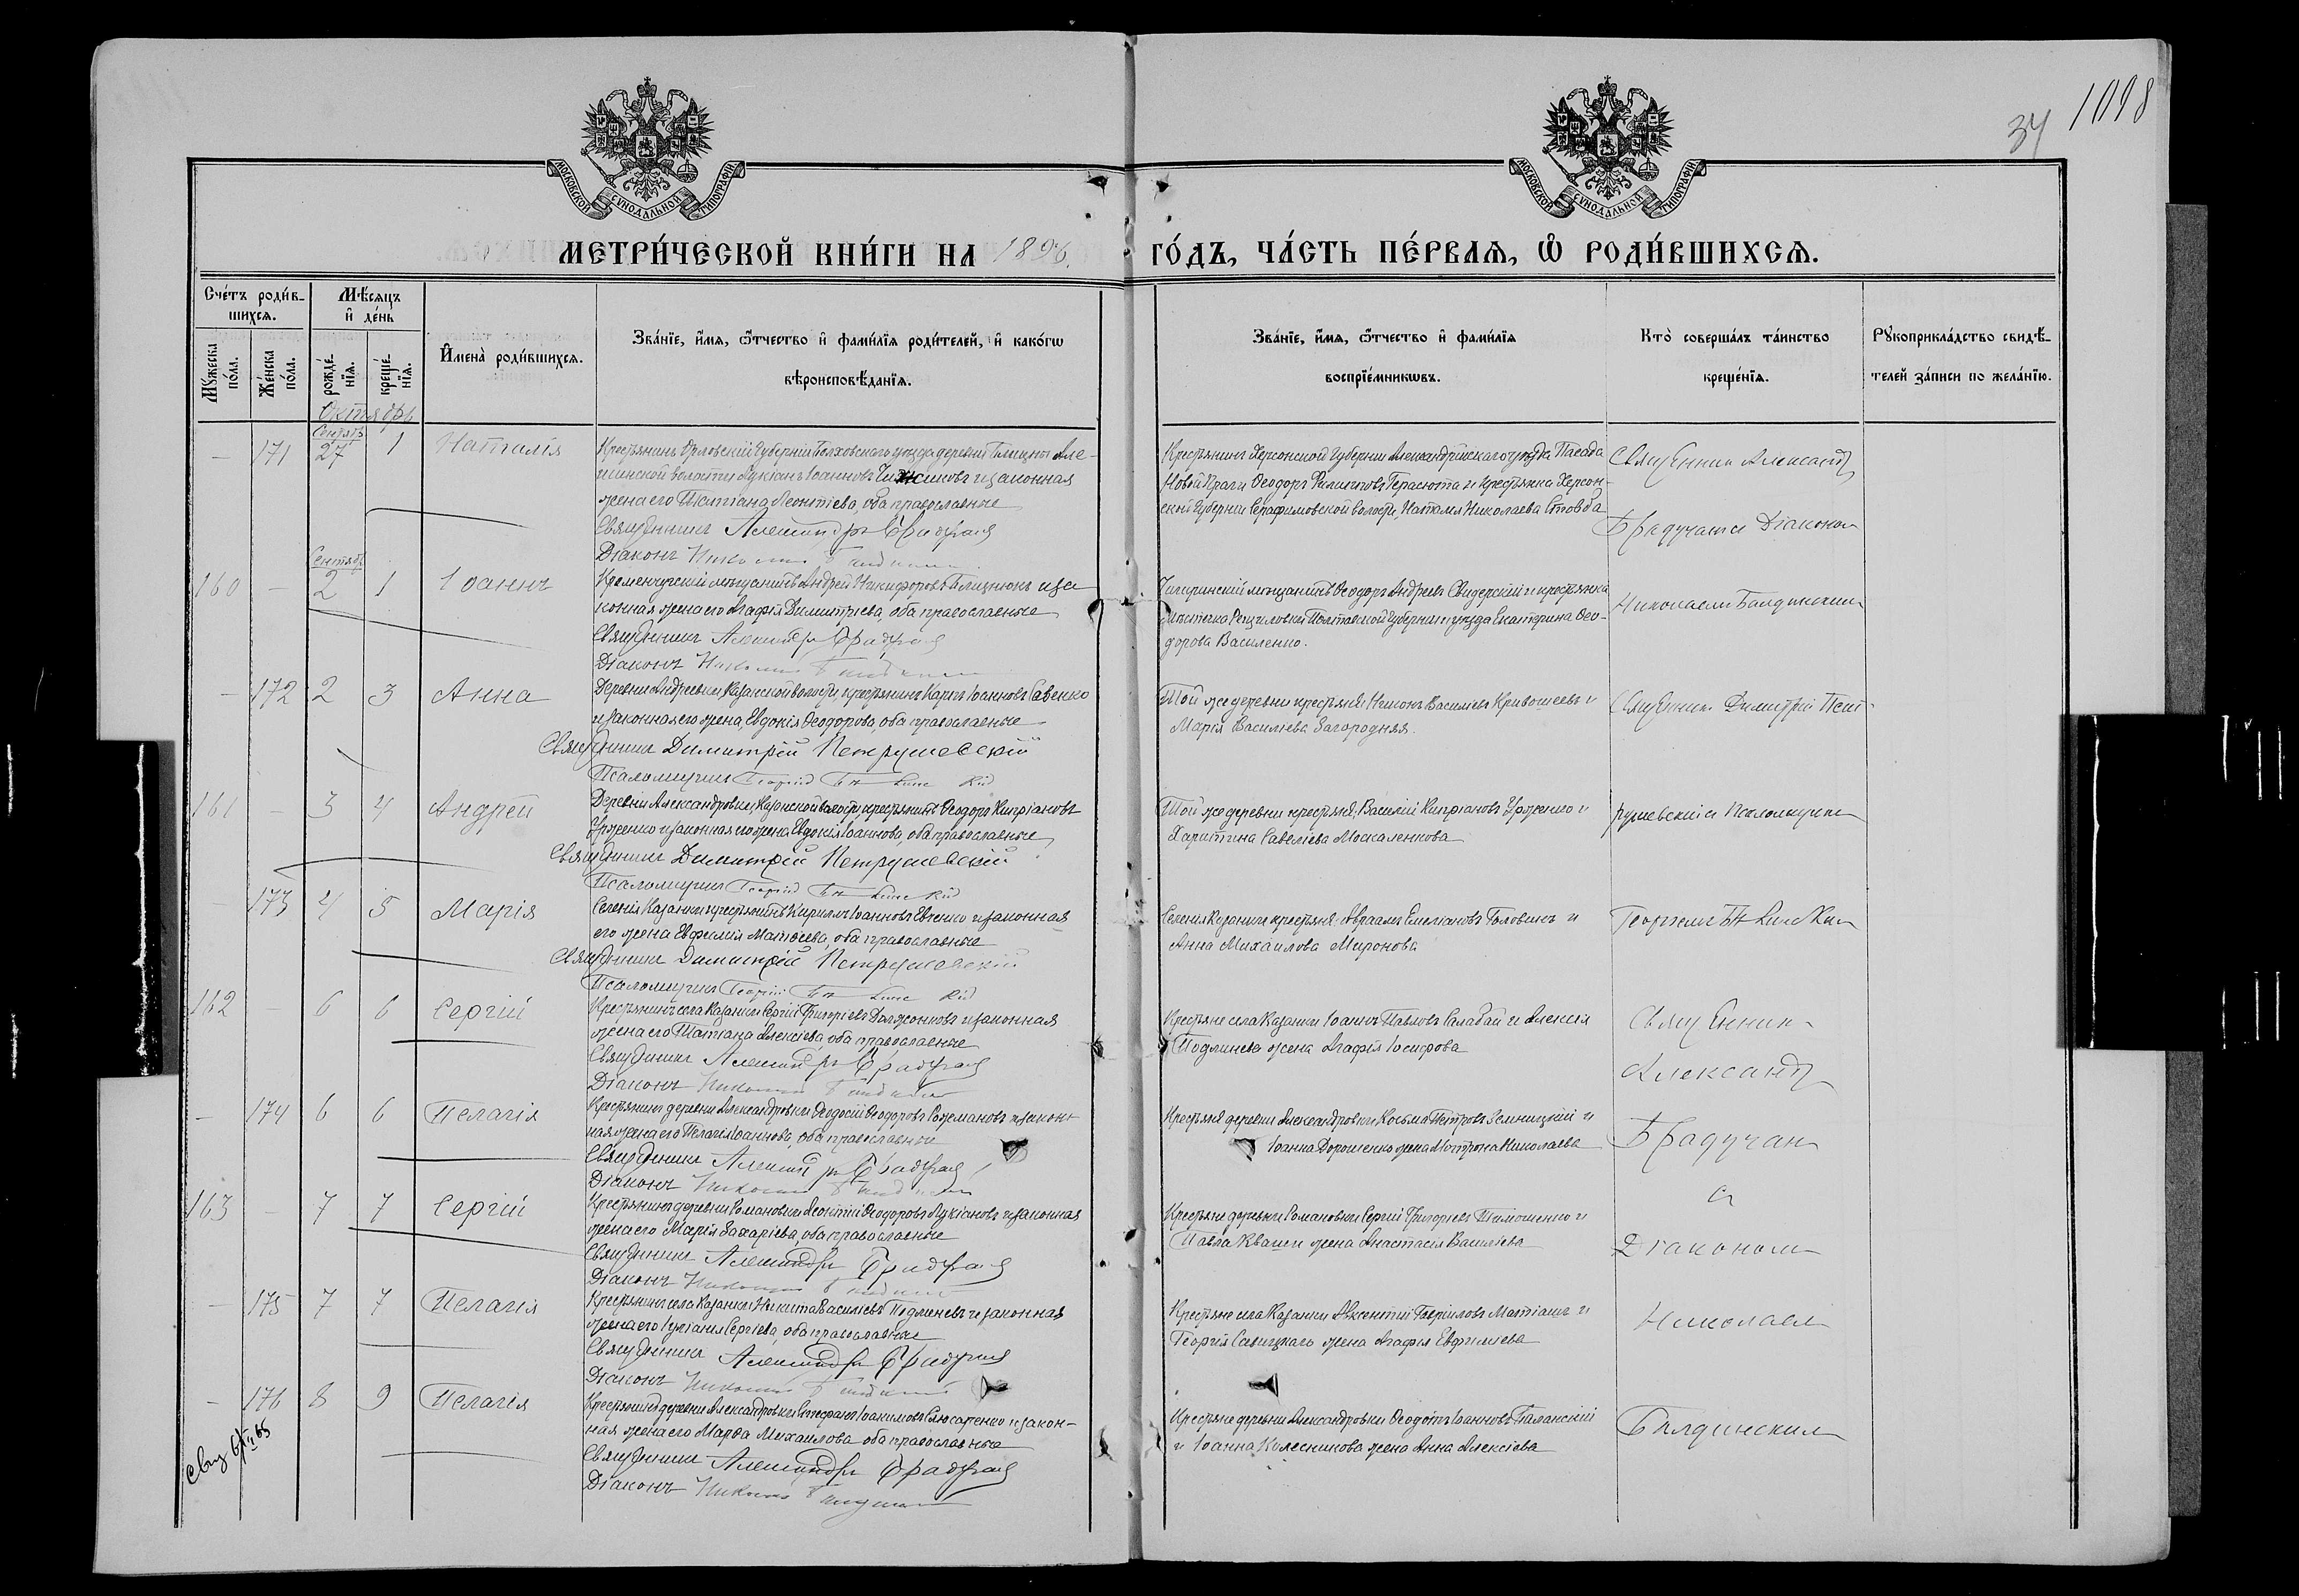 1098
34
МОСКОВСКОЙ СУНОДАЛЬНОЙ ТИПОГРАФІИ
МОСКОВСКОЙ СУНОДАЛЬНОЙ ТИПОГРАФІИ
МЕТРИ́ЧЕСКОЙ КНИ́ГИ НА 1896. ГО́ДЪ, ЧА́СТЬ ПЕ́РВАѦ, Ѽ РОДИ́ВШИХСѦ.
Сче́тъ роди́в-
шихсѧ.
Мѣ́сѧцъ
и҆ де́нь
Мꙋ́жеска по́ла.
Же́нска по́ла.
рожде́-нїѧ.
креще́-нїѧ.
И҆мена̀ роди́вшихсѧ.
Зва́нїе, и҆́мѧ, ѻ҆́тчество и҆ фами́лїѧ роди́телей, и҆ како́гѡ
вѣроисповѣ́данїѧ.
Зва́нїе, и҆́мѧ, ѻ҆́тчество и҆ фами́лїѧ
воспрїе́мникѡвъ.
Кто̀ соверша́лъ та́инство
креще́нїѧ.
Рꙋкоприкла́дство свидѣ́-
телей за́писи по жела́нїю.
Октябрь
— 171 Сентябр 27 1 Наталія
Крестьянинъ Орловской губерніи Болховскаго уѣзда деревни
волости Лукіанъ Іоанновъ и законная
жена его Татіана Леонтіева, оба православные
Священникъ Александръ Брадучанъ
Діаконъ Николай
Крестьянинъ Херсонской губерніи Александрійскаго уѣзда Посада
Новой Праги Ѳеодоръ Филипповъ Герасюта и крестьянка Херсон-
ской губерніи Серафимовской волости, Наталія Николаева Стовба
Священникъ Александръ
Брадучанъ съ Діакономъ
160 — Сентябр 2 1 Іоаннъ
Кременчугскій мѣщанинъ Андрей Никифоровъ и за-
конная жена его Агафія Димитріева, оба православные
Священникъ Александръ Брадучанъ
Діаконъ Николай
Чигиринскій мѣщанинъ Ѳеодоръ Андреевъ Свидерскій и крестьянка
мѣстечка Рѣшиловки Полтавской губерніи и уѣзда Екатерина Ѳео-
дорова Василенко.
Николаемъ Балдинскимъ
— 172 2 3 Анна
Деревни Андреевки Казанской волости, крестьянинъ Карпъ Іоанновъ Савенко
и законная его жена, Евдокія Ѳеодорова, оба православные
Священникъ Димитрій Петрушевскій
Псаломщикъ Георгій
Той же деревни крестьяне: Никонъ Василіевъ Кривошеевъ и
Марія Василіева Загородняя.
Священникъ Димитрій Пет-
161 — 3 4 Андрей
Деревни Александровки, Казанской волости, крестьянинъ Ѳеодоръ Кипріановъ
и законная его жена Евдокія Іоаннова, оба православные
Священникъ Димитрій Петрушевскій
Псаломщикъ Георгій
Той же деревни крестьяне: Василій Кипріановъ и
Харитина Савеліева Москаленкова
рушевскій съ Псаломщикомъ
— 173 4 5 Марія
Селенія Казанки крестьянинъ Кириллъ Іоанновъ Евченко и законная
его жена Евфимія Матѳеева, оба православные
Священникъ Димитрій Петрушевскій
Псаломщикъ Георгій
Селенія Казанки крестьяне: Авраамъ Емеліановъ Головинъ и
Анна Михаилова Миронова
Георгіемъ
162 — 6 6 Сергій
Крестьянинъ села Казанки Сергій Григоріевъ Должонковъ и законная
жена его Татіана Алексіева, оба православные
Священникъ Александръ Брадучанъ
Діаконъ Николай
Крестьяне села Казанки Іоаннъ Павловъ Салабай и Алексія
Подлинева жена Агафія Іосифова
Священник-
Александръ
— 174 6 6 Пелагія
Крестьянинъ деревни Александровки Ѳеодосій Ѳеодоровъ и закон-
ная жена его Пелагія Іоаннова, оба православные
Священникъ Александръ Брадучанъ
Діаконъ Николай
Крестьяне деревни Александровки Косьма Петровъ Зелинскій и
Іоанна Дорошенко жена Матрона Николаева
Брадучан
съ
163 — 7 7 Сергій
Крестьянинъ деревни Романовки Леонтій Ѳеодоровъ Лукіановъ и законная
жена его Марія Захаріева, оба православные
Священникъ Александръ Брадучанъ
Діаконъ Николай
Крестьяне деревни Романовки Сергій Григоріевъ Тимошенко и
Павла Кваши жена Анастасія Василіева
Діакономъ
— 175 7 7 Пелагія
Крестьянинъ села Казанки Никита Василіевъ Подлиневъ и законная
жена его Іуліанія Сергіева, оба православные
Священникъ Александръ Брадучанъ
Діаконъ Николай
Крестьяне села Казанки Авксентій Гавріиловъ Матіашъ и
Георгія Савицкаго жена Агафія Евфиміева
Николаемъ
— 176 8 9 Пелагія
Крестьянинъ деревни Александровки Стефанъ Іоакимовъ Слюсаренко и закон-
ная жена его Марѳа Михаилова оба православные
Священникъ Александръ Брадучанъ
Діаконъ Николай
Крестьяне деревни Александровки Ѳеодотъ Іоанновъ Паланскій
и Іоанна Колесникова жена Анна Алексіева
Балдинскимъ